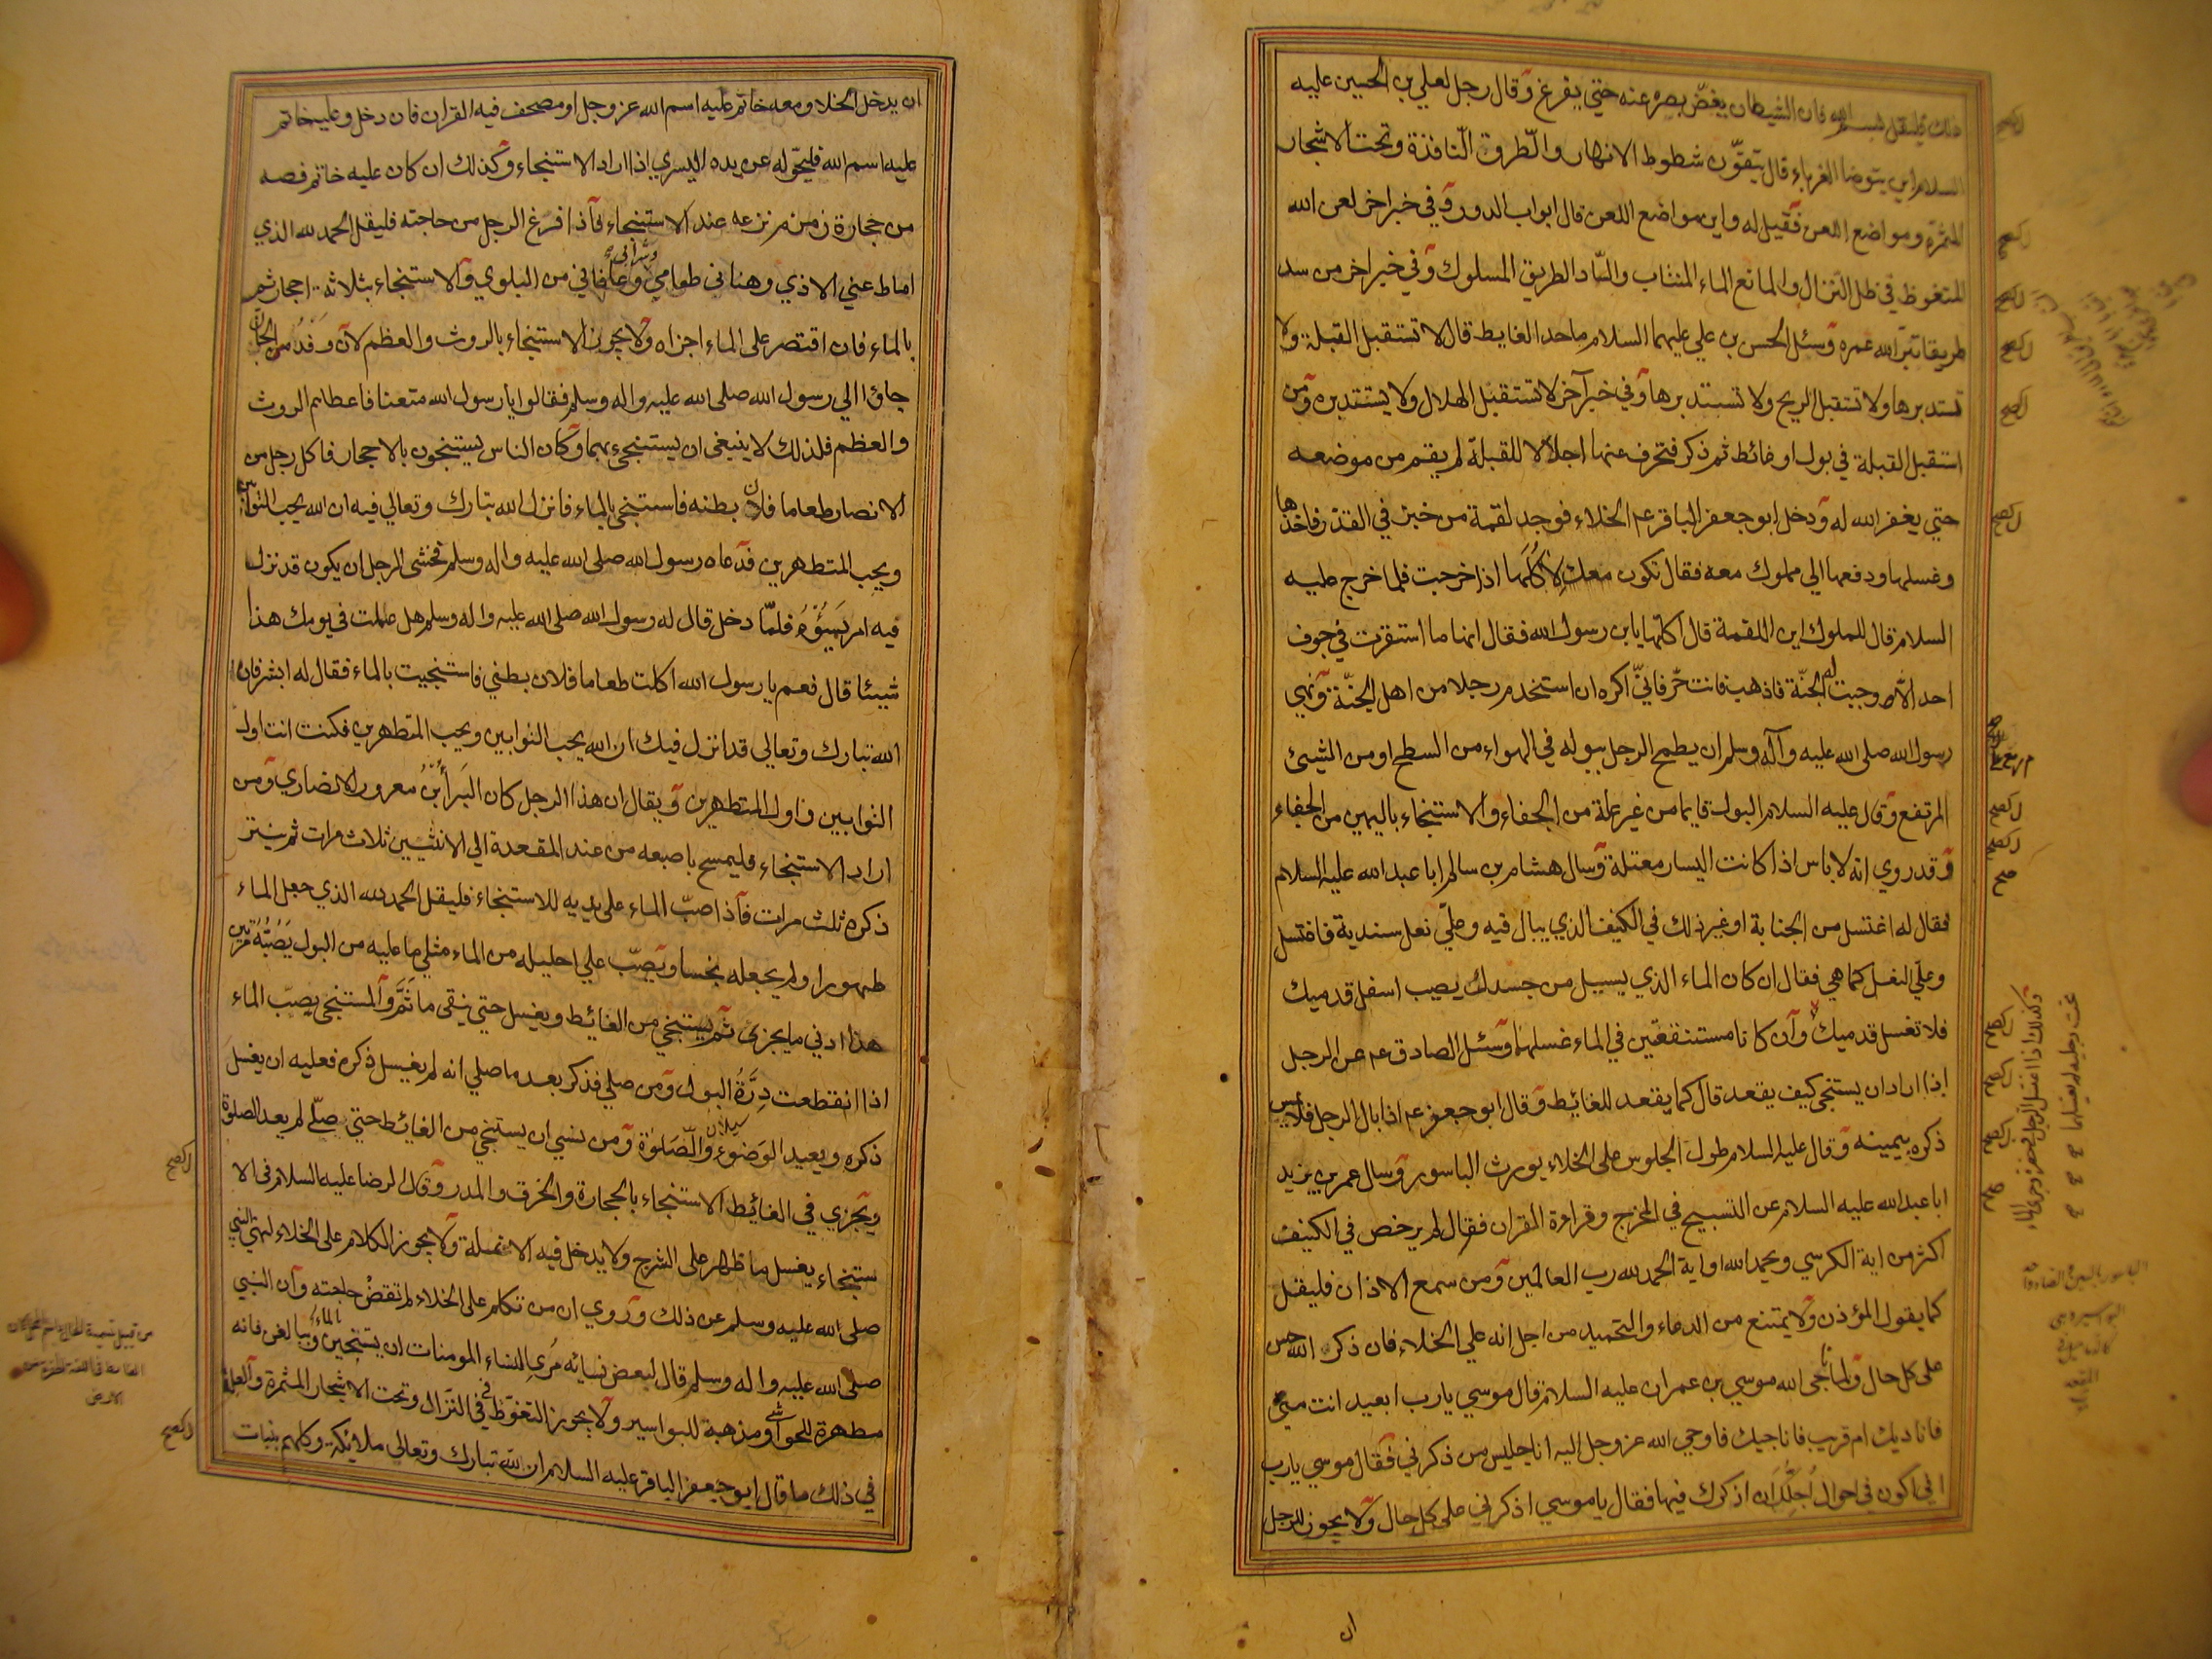 ذلك فليقل بسم الله فان الشيطان يغضّ بصره عنه حتي يفرغ وقال رجل لعلي بن الحسين عليه
السلام اين يتوضا الغرباء قال يتقون شطوط الانهار والطرق النافذة وتحت الاشجار
المثمرة ومواضع اللعن فقيل له واين مواضع اللعن قال ابواب الدور وفي خبر اخر لعن الله
المتغوظ في ظل النزال والمانع الماء المنتاب والساد الطريق المسلوك وفي خبر اخر من سد
طريقا بتر الله عمره وسئل الحسن بن علي عليهما السلام ما حد الغايط قال لا تستقبل القبلة ولا
تستدبرها ولا تستقبل الريح ولا تستدبرها وفي خبر آخر لا تستقبل الهلال ولا يستتدبره ومن
استقبل القبلة في بول او غائط ثم ذكر فتحرف عنها اجلالا للقبلة لم يقم من موضعه
حتي يغفر الله له ودخل ابو جعفر الباقر عم الخلاء فوجد لقمة من خبز في القذر فاخذها
وغسلها ودفعها الي مملوك معه فقال تكون معك لاكلها اذا خرجت فلما خرج عليه
السلام قال للملوك اين اللقمة قال اكلتها يا بن رسول الله فقال انها ما استقرت في جوف
احد الا وجبت له الجنة فاذهب فانت حر فاني اكره ان استخدم رجلا من اهل الجنة ونهي
رسول الله صلى الله عليه وآله وسلم ان يطمح الرجل ببوله في الهواء من السطح او من الشيئ
المرتفع وقال عليه السلام البول قايما من غير علة من الجفاء والاستنجاء باليمين من الجفاء
وقد روي انه لا باس اذا كانت اليسار معتلة وسال هشام بن سالم ابا عبد الله عليه السلام
فقال له اغتسل من الجنابة او غير ذلك في الكنيف الذي يبال فيه وعليّ نعل سندية فاغتسل
وعلي النعل كما هي فقال ان كان الماء الذي يسيل من جسدك يصيب اسفل قدميك
فلا تغسل قدميك وان كانا مستنقعتين في الماء غسلهما وسئل الصادق عم عن الرجل
اذا اراد ان يستنجي كيف يقعد قال كما يقعد للغائيط وقال ابو جعفر عم اذا بال الرجل فلا يمس
ذكره بيمينه وقال عليه السلام طول الجلوس على الخلاء يورث الباسور وسال عمر بن يزيد
ابا عبد الله عليه السلام عن التسبيح في المخرج وقراءة القران فقال لم يرخص في الكنيف
اكثر من اية الكرسي ويحمد الله او اية الحمد لله رب العالمين ومن سمع الاذان فليقل
كما يقول المؤذن ولا يمتنع من الدعاء والتحميد من اجل انه علي الخلاء فان ذكر الله حسن
على كل حال ولما ناجى الله موسي بن عمران عليه السلام قال موسي يا رب ابعيد انت مني
فاناديك ام قريب فاناجيك فاوحي الله عز وجل اليه انا جليس من ذكرني فقال موسي يا رب
اني اكون في احوال اجلك ان اذكرك فيها فقال يا موسي اذكرني على كل حال ولا يجوز للرجل
ان
ان يدخل الخلا ومعه خاتم عليه اسم الله عز وجل او مصحف فيه القران فان دخل وعليه خاتم
عليه اسم الله فليحوله عن يده اليسري اذا اراد الاستنجاء وكذلك ان كان عليه خاتم فصه
من حجارة زمزم نزعه عند الاستنجاء فاذا فرغ الرجل من حاجته فليقل الحمد لله الذي
اماط عني الاذي وهناني طعامي وشرابي وعافاني من البلوي والاستنجاء بثلاثة احجار ثم
بالماء فان اقتصر على الماء اجزاه ولا يجوز الاستنجاء بالروث والعظم لان وفد من الجان
جاؤا الي رسول الله صلى الله عليه واله وسلم فقالوا يا رسول الله متعنا فاعطاهم الروث
والعظم فلذلك لا ينبغي ان يستنجى بهما وكان الناس يستنجون بالاحجار فاكل رجل من
الانصار طعاما فلان بطنه فاستنجي بالماء فانزل الله تبارك وتعالي فيه ان الله يحب التوابين
ويحب المتطهرين فدعاه رسول الله صلى الله عليه واله وسلم فخشى الرجل ان يكون قد نزل
فيه امر يسوءه فلمّا دخل قال له رسول الله صلى الله عليه واله وسلم هل عملت في يومك هذا
شيئا قال نعم يا رسول الله اكلت طعاما فلان بطني فاستنجيت بالماء فقال له ابشر فان
الله تبارك وتعالي قد انزل فيك ان الله يحب التوابين ويحب المتطهرين فكنت انت اول
التوابين واول المتطهرين ويقال ان هذا الرجل كان البرأ بن معرور الانصاري ومن
اراد الاستنجاء فليمسح باصبعه من عند المقعدة الي الانثيين ثلاث مرات ثم ينتر
ذكره ثلث مرات فاذا صبّ الماء على يديه للاستنجاء فليقل الحمد لله الذي جعل الماء
طهورا ولم يجعله نجسا ويصبّ علي احليله من الماء مثلي ما عليه من البول يصبّه مرتين
هذا ادني ما يجزي ثم يستنجي من الغائيط ويغسل حتي ينقى ما ثمّ والمستنجي يصبّ الماء
اذا انقطعت درّة البول ومن صلي فذكر بعد ما صلي انه لم يغسل ذكره فعليه ان يغسل
سيلان
ذكره ويعيد الوضوء والصلوة ومن نسي ان يستنجي من الغائيط حتي صلّي لم يعد الصلوة
ويجزي في الغائيط الاستنجاء بالحجارة والخرق والمدر وقال الرضا عليه السلام في الا
ستنجاء يغسل ما ظهر على الشرج ولا يدخل فيه الانملة ولا يجوز الكلام على الخلاء لنهي النبي
صلى الله عليه وسلم عن ذلك وروي ان من تكلم على الخلاء لم تقض حاجته وان النبي
صلى الله عليه واله وسلم قال لبعض نسائه مري النساء المومنات ان يستنجين بالماء ويبالغن فانه
مطهرة للحواشي ومذهبة للبواسير ولا يجوز التغوط في فئ النزال وتحت الاشجار المثمرة والعلة
في ذلك ما قال ابو جعفر الباقر عليه السلام ان الله تبارك وتعالى ملائكة وكلهم بنبات